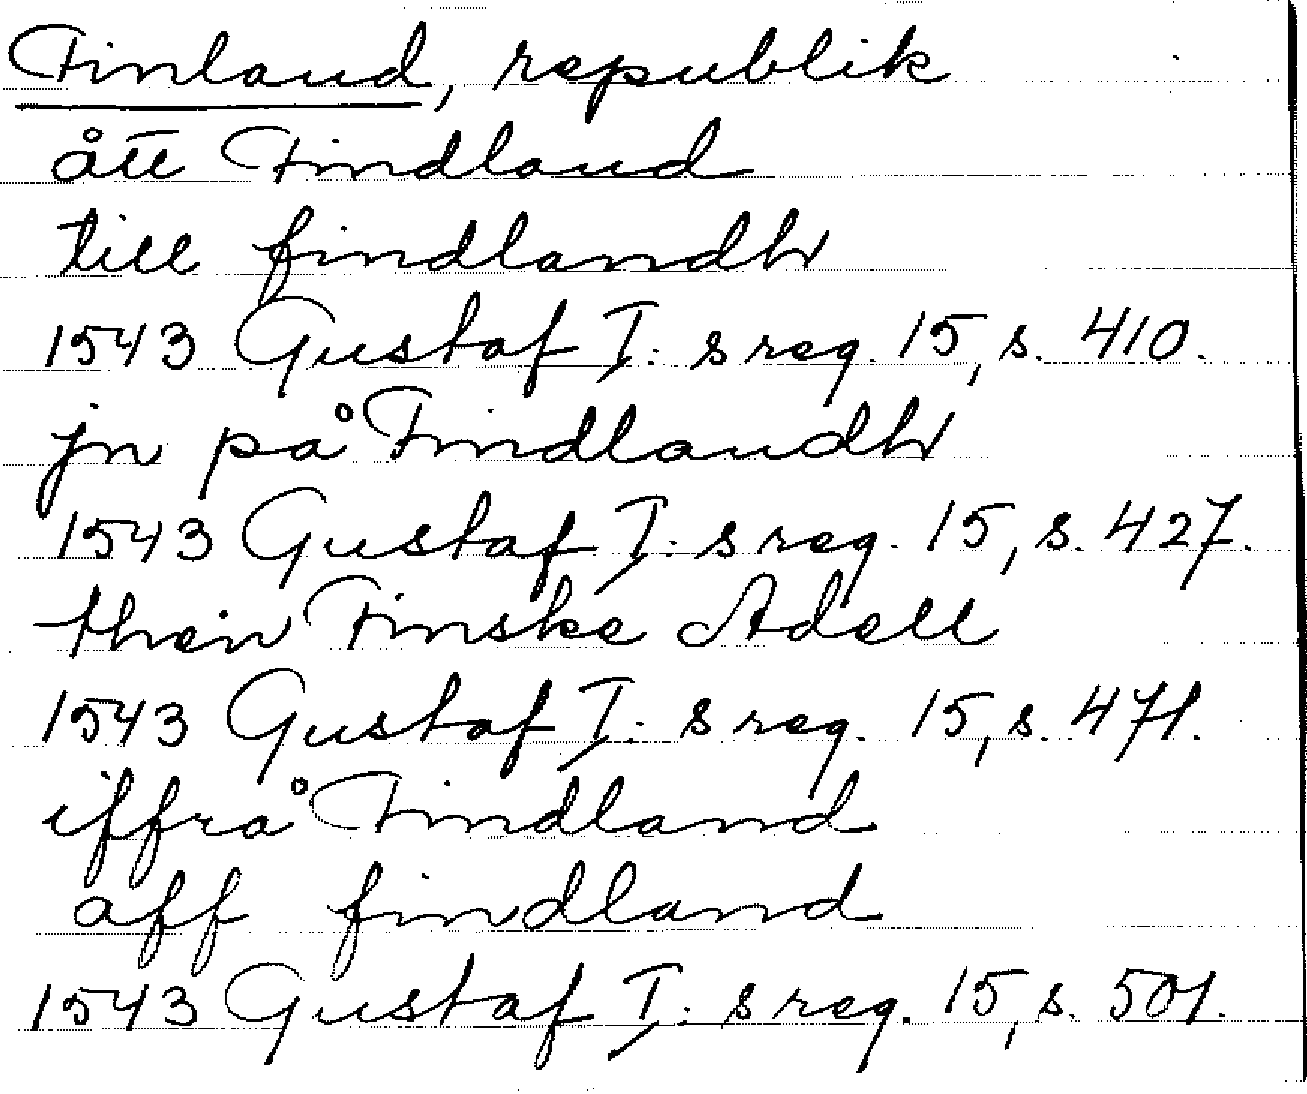 Finland, republik
ått Findland
till findlandh
1543 Gustaf I:s reg. 15, s. 410.
jn på Findlandh
1543 Gustaf I:s reg. 15, s. 427.
then Finske Adell
1543 Gustaf I:s reg. 15, s. 471.
iffrå Findland
aff findland
1543 Gustaf I:s reg. 15, s. 501.